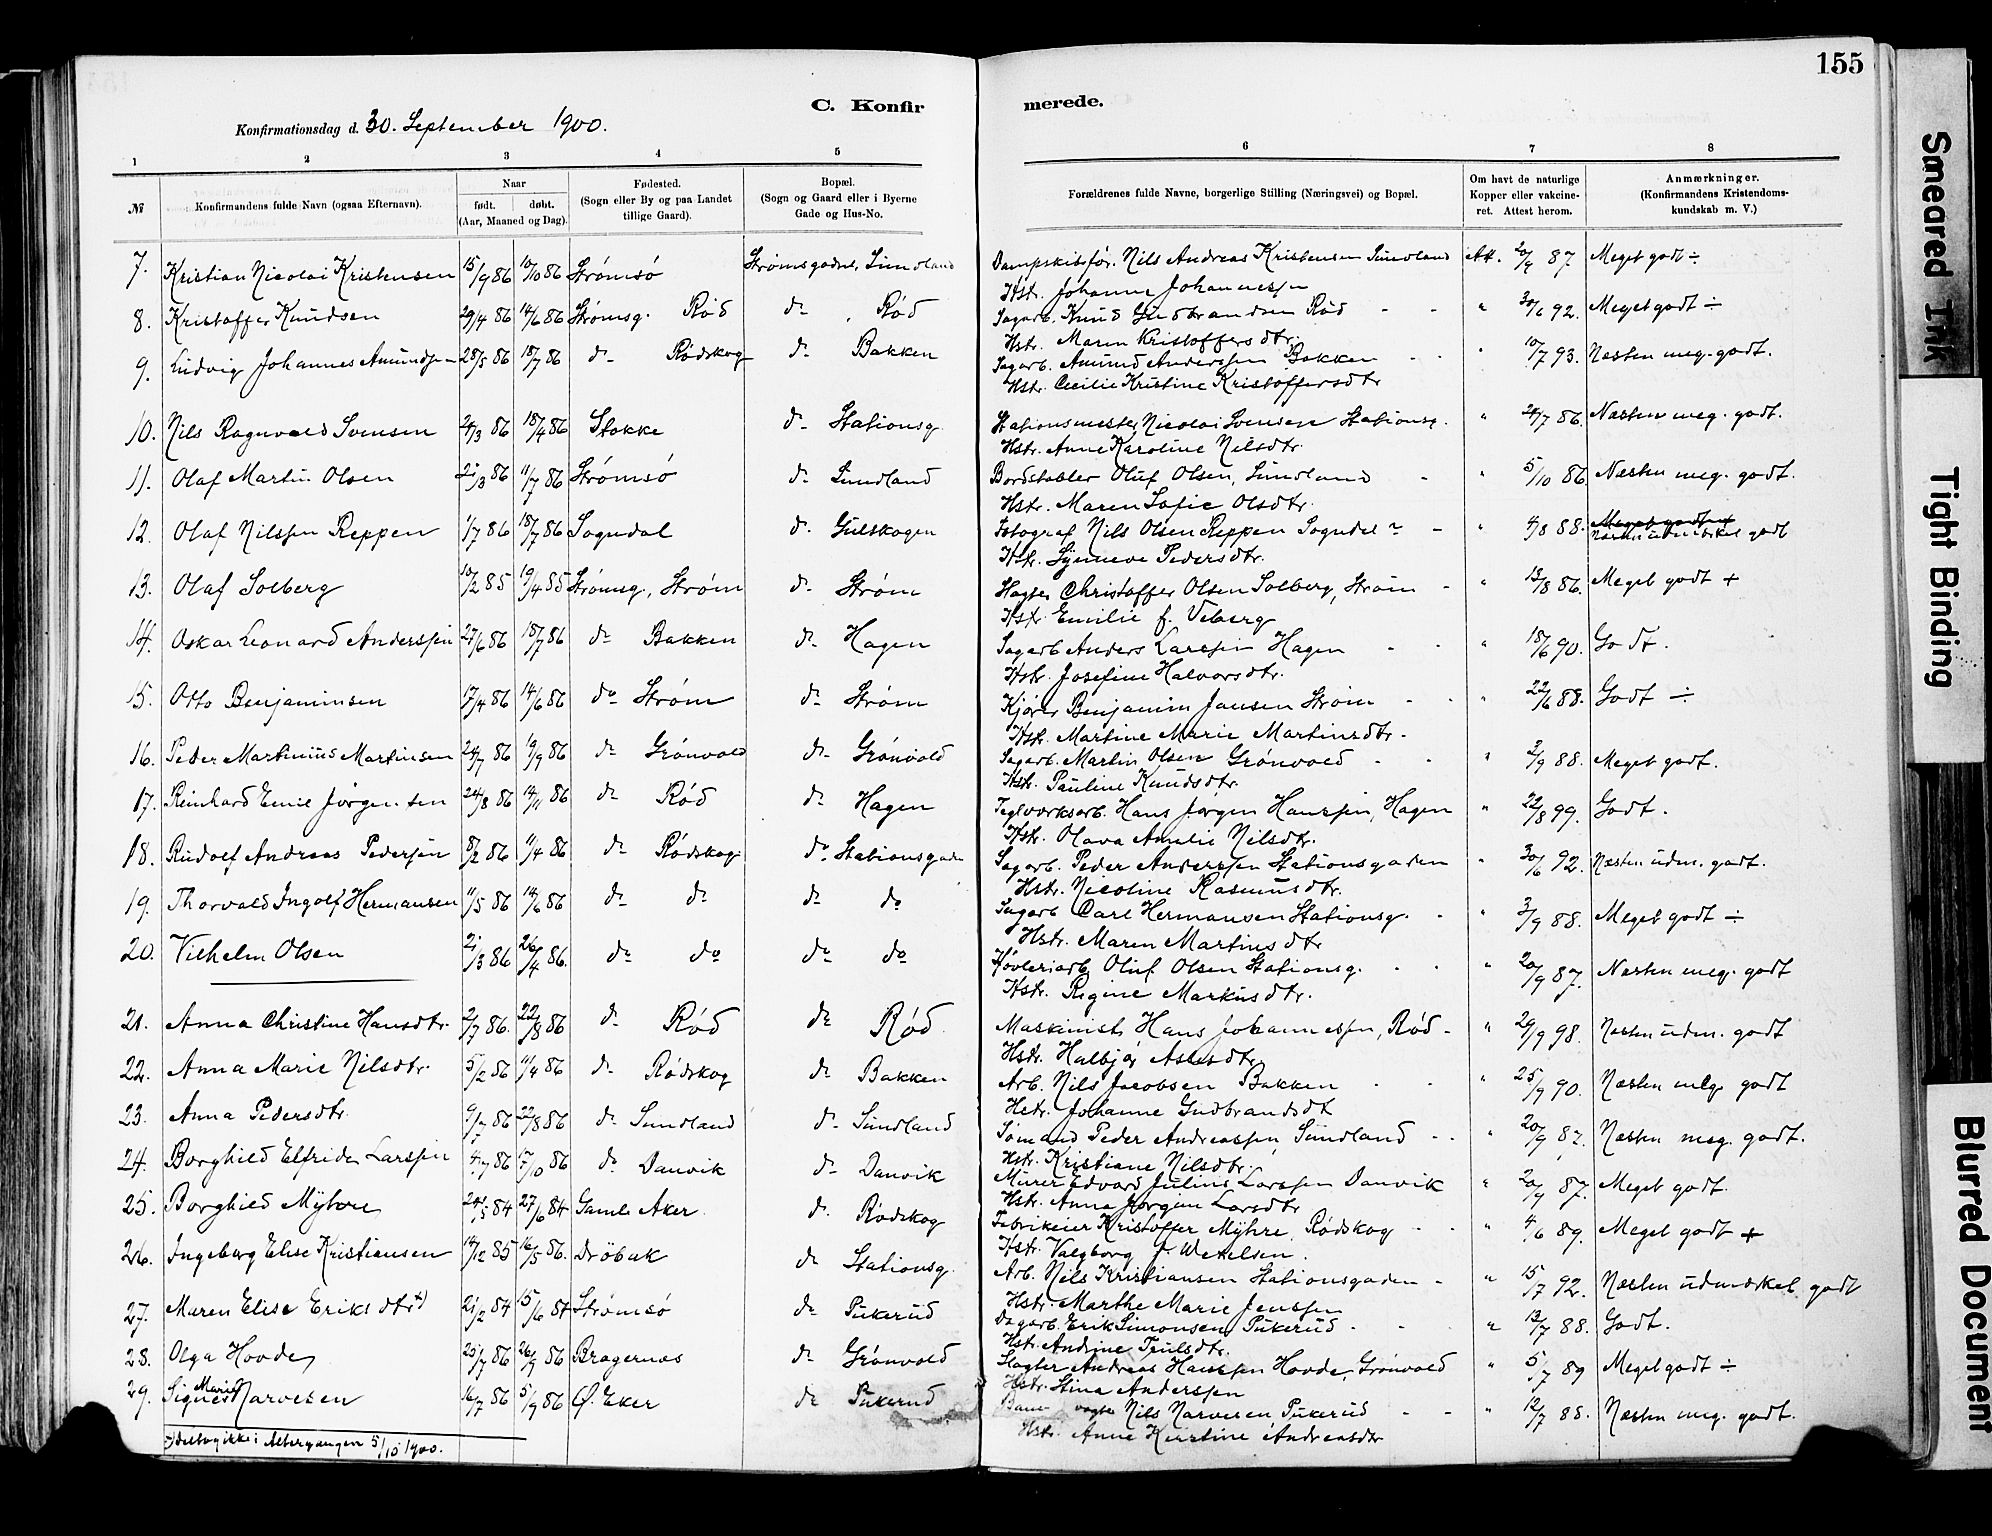 155
C. Konfir merede.
Konfirmationsdag d. 30. September 1900.
1 2 3 4 5 6 7 8
№ Konfirmandens fulde Navn (ogsaa Efternavn). Naar født. døbt. (Aar, Maaned og Dag). Fødested. (Sogn eller By og paa Landet tillige Gaard). Bopæl. (Sogn og Gaard eller i Byerne Gade og Hus-No. Forældrenes fulde Navne, borgerlige Stilling (Næringsvei) og Bopæl. Om havt de naturlige Kopper eller vakcineret. Attest herom. Anmærkninger. (Konfirmandens Kristendomskundskab m. V.)
7. Kristian Nicolai Kristensen 15/9 86 10/10 86 Strømsø Strømsgodset, Sundland Dampskibsfør. Nils Andreas Kristensen Sundland Att. 20/9 87. Meget godt ÷
Hstr. Johanne Johannessen
8. Kristoffer Knudsen 29/4 86 14/6 86 Strømsg. Rød do , Rød Sagarb. Knud Gudbrandsen Rød - - " 30/6 92. Meget godt ÷
Hstr. Maren Kristoffersdtr.
9. Ludvig Johannes Amundsen 28/5 86 18/7 86 do Rødskog do Bakken Sagarb. Amund Anderssen Bakken - - " 10/7 93. Næsten meg. godt.
Hstr. Cecilie Kristine Kristoffersdtr
10. Nils Ragnvald Svensen 24/3 86 18/4 86 Stokke do Stationsg. Stationsmester Nicolai Svensen Stationsg. " 24/7 86. Næsten meg. godt.
Hstr. Anne Karoline Nilsdtr.
11. Olaf Martin Olsen 21/3 86 11/7 86 Strømsø do Sundland Bordstabler Oluf Olsen, Sundland - " 5/10 86 Næsten meg. godt.
Hstr. Maren Sofie Olsdtr.
12. Olaf Nilssen Reppen 1/7 86 18/7 86 Sogndal do Gulskogen Fotograf Nils Olsen Reppen Sogndal - " 4/8 88. Meget godt næsten udmærket godt
Hstr. Synneve Pedersdtr.
13. Olaf Solberg 10/2 85 19/4 85 Strømsg, Strøm do Strøm Slagter Christoffer Olsen Solberg, Strøm - " 13/8 86. Meget godt +
Hstr. Emilie f. Veberg
14. Oskar Leonard Anderssen 27/6 86 18/7 86 do Bakken do Hagen Sagarb Anders Larssen Hagen - - " 18/6 90. Godt.
Hstr. Josefine Halvorsdtr.
15. Otto Benjaminsen 17/4 86 14/6 86 do Strøm do Strøm Kjører Benjamin Jansen Strøm - - " 22/6 88. Godt ÷
Hstr. Martine Marie Martinsdtr.
16. Peder Martinius Martinsen 24/7 86 19/9 86 do Grønvold do Grønvold Sagarb. Martin Olsen Grønvold - - " 3/9 88. Meget godt.
Hstr. Pauline Knudsdtr.
17. Reinhard Emil Jørgensen 24/8 86 14/11 86 do Rød do Hagen Teglværksarb. Hans Jørgen Hanssen, Hagen " 22/8 99. Godt.
Hstr. Olava Amalie Nilsdtr.
18. Rudolf Andreas Pederssen 8/2 86 11/4 86 do Rødskog do Stationsgaden Sagarb. Peder Anderssen Stationsgaden " 30/6 92. Næsten udm. godt.
Hstr. Nicoline Rasmusdtr.
19. Thorvald Ingolf Hermansen 11/5 86 14/6 86 do do do do Sagarb Carl Hermansen Stationsg. - " 3/9 88. Meget godt ÷
Hstr. Maren Martinsdtr
20. Vilhelm Olsen 21/3 86 26/4 86. do do do do Høvleriarb. Oluf Olsen Stationsg. - - " 20/9 87. Næsten meg. godt
Hstr. Regine Markusdtr.
21. Anna Christine Hansdtr. 2/7 86. 22/8 86 do Rød do Rød Maskinist Hans Johannessen, Rød - " 29/9 98. Næsten udm. godt
Hstr. Halbjør Aslesdtr.
22. Anna Marie Nilsdtr. 5/2 86 11/4 86 do Rødskog do Bakken Arb. Nils Jacobsen Bakken - - " 25/9 90. Næsten meg. godt
Hstr. Johanne Gudbrandsdt
23. Anna Pedersdtr. 9/7 86 22/8 86 do Sundland do Sundland Sømand Peder Andreassen, Sundland - - " 20/9 87. Næsten meg. godt.
Hstr. Kristiane Nilsdtr.
24. Borghild Elfrida Larssen 4/7 86 17/10 86 do Danvik do Danvik Murer Edvard Julius Larssen Danvik " 20/9 87. Meget godt.
Hstr. Anna Jørgine Larsdtr
25. Borghild Myhre 24/5 84 27/6 84 Gamle Aker do Rødskog Fabrikeier Kristoffer Myhre, Rødskog - - " 4/6 89. Meget godt +
Hstr. Valgborg f. Wexelsen.
26. Ingeborg Elise Kristiansen 14/12 85 16/5 86. Drøbak do Stationsg. Arb. Nils Kristiansen Stationsgaden - " 15/7 92. Næsten udmærket godt
Hstr. Marthe Marie Jenssen
27. Maren Elise Eriksdtr x) 21/2 84 15/6 84 Strømsø do Pukerud Dagarb. Erik Simonsen, Pukerud - - " 12/7 88. Godt.
Hstr. Andrine Trulsdtr.
28. Olga Hovde 25/7 86 26/9 86 Bragernæs do Grønvold Slagter Andreas Hanssen Hovde, Grønvold " 5/7 89 Meget godt ÷
Hstr. Stina Anderssen
29. Signe Marie Narvesen 16/7 86 5/9 86 Ø. Eker do Pukerud Banevogter Nils Narvesen, Pukerud - - " 12/7 88. Næsten meg. godt.
Hstr. Anne Kirstine Andreasdtr
x) deltog ikke i Altergangen 5/10 1900.
Smeared Ink
Tight Binding
Blurred Document